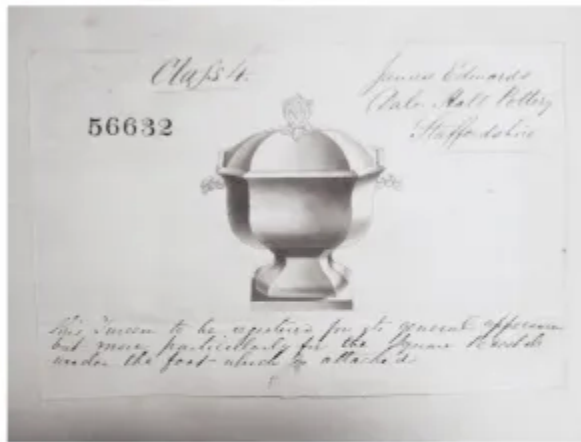 Class 4.
James Edwards
Dale Hall Pottery
Staffordshire
56632
This Tureen to be registered for its general appearance
but more particularly for the Square Pedestal
under the foot which is attached.